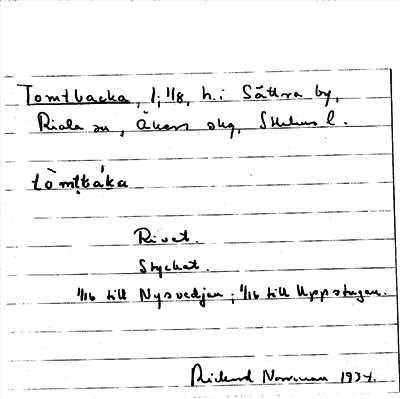 Tomtbacka, l, 1/8, h.i Sättra by,
Riala sn, Åkers skg, Sthlms l.
tòmtbáka
Rivet.
Styckat.
1/16 till Nysvedjan; 1/16 till Uppstugan.
Rickard Norrman 1934.